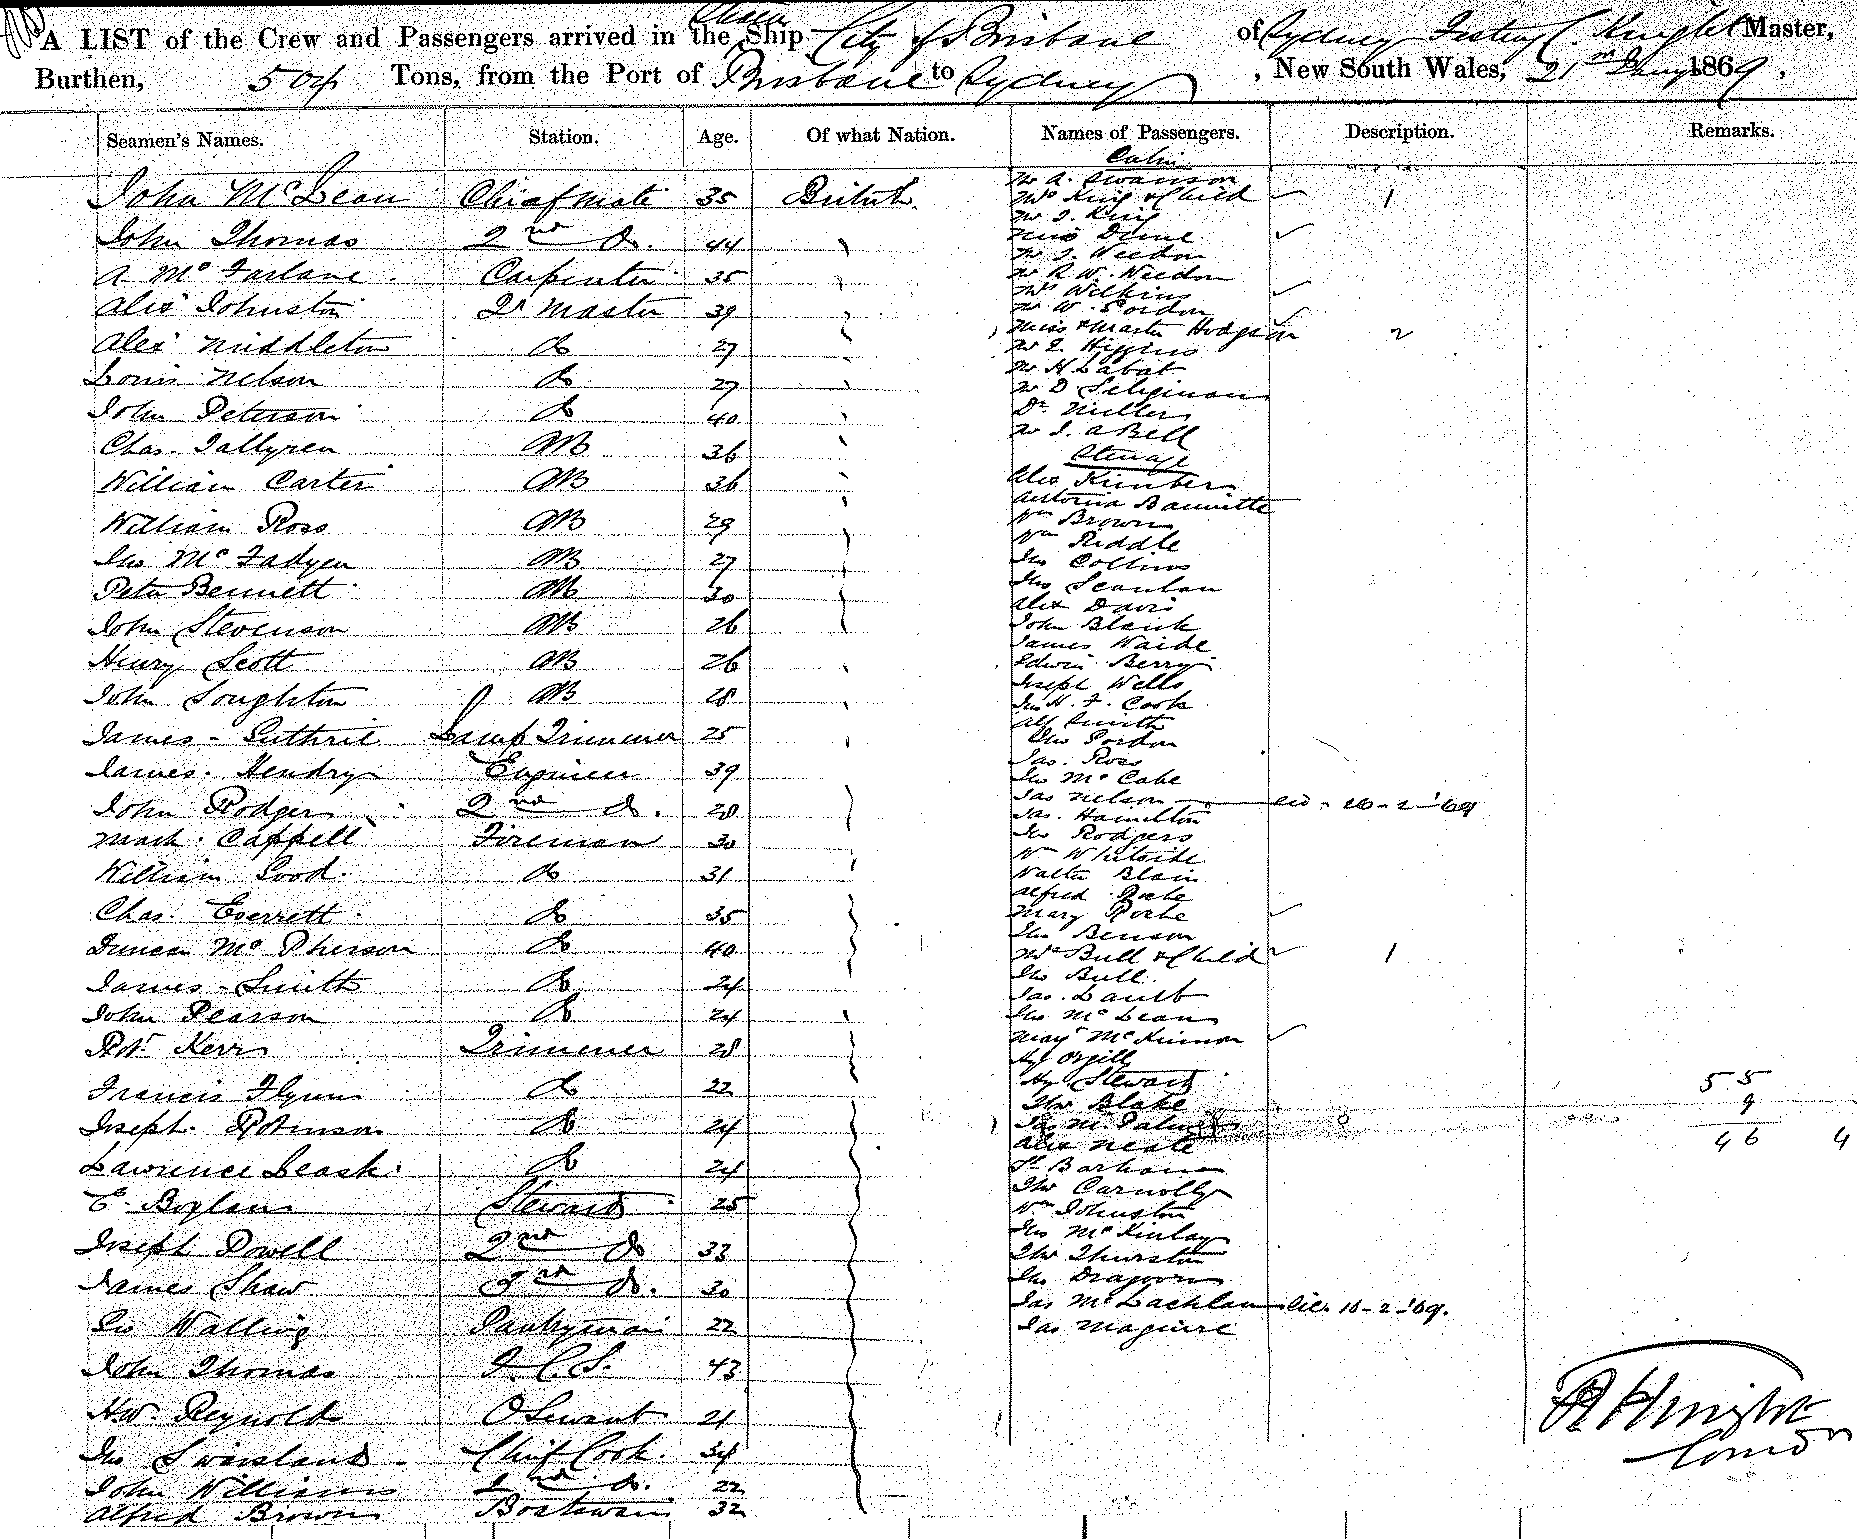 A LIST of the Crew and Passengers arrived in the Ship City of Brisbane of Sydney C. Knight Master,
Burthen, 504 Tons, from the Port of Brisbane to Sydney, New South Wales, 21st 1869.
Seamen's Names. Station. Age. Of what Nation. Names of Passengers. Description. Remarks.
John McLean Chief mate 35 British
John Thomas 2nd Do. 44
A McFarlane Carpenter 35
Alex Johnston Qr Master 39
Alex Middleton Do 27
Louis Nelson Do 27
John Peterson Do 40
Chas. AB 36
William Carter AB 36
William Ross AB 29
Jno McFadyen AB 27
Peter Bennett AB 30
John Stevenson AB 26
Henry Scott AB 26
John Loughton AB 28
James Guthrie Lamp Trimmer 25
James Hendry Engineer 39
John Rodgers 2nd Do. 28
Mark Cappell Fireman 30
William Good Do 31
Chas. Everrett Do 35
Duncan McPherson Do 40
James Smith Do 24
John Pearson Do 24
Robt Kerr Trimmer 28
Francis Flynn Do 22
Joseph Robinson Do 24
Lawrence Leask Do 24
E. Boylan Steward 25
Joseph Powell 2nd Do 33
James Shaw 3rd Do. 30
Jno Walling Pantryman 22
John Thomas F.C.S. 43
Hy. Reynolds 21
Jno Swinsland Chief Cook 34
John Williams 2nd Do. 22
Alfred Brown Boatswain 32
Cabin
Mr A. Swanson
Mrs King & Child 1
Mr J. King
Miss
Mr J. Weedon
Mr R W. Weedon
Mrs Wilkins
Mr W. Gordon
Miss & Master Hodgson 2
Mr Higgins
Mr H Labat
Mr D Seligman
Dr. Miller
Mr J. A Bell
Steerage
Alex Kimber
Antonia
Wm Brown
Wm Riddle
Jno Collins
Jno Scanlan
Alex Davis
John Blank
James Waide
Edwin Berry
Joseph Wells
Jno H. F. Cook
Alf Smith
Jno Gordon
Jas. Ross
Jno McCabe
Jas Nelson
Jas. Hamilton
Jno Rodgers
Wm Whiteside
Walter Blain
Alfred Roche
Mary Roche
Jno Benson
Mrs Bull & Child 1
Jno Bull
Jas. Lamb
Jno McLean
McKinnon
Hy Orgill
Hy Stewart
Thos Blake
Jas M. Palmer
Alex Neale
Barham
Thos Carnolly
Wm Johnston
Jno McKinlay
Thos Thurston
Jno
Jas McLachlan 10-2-'69.
Jas Maguire
55
9
46 4
Knight
Comdr